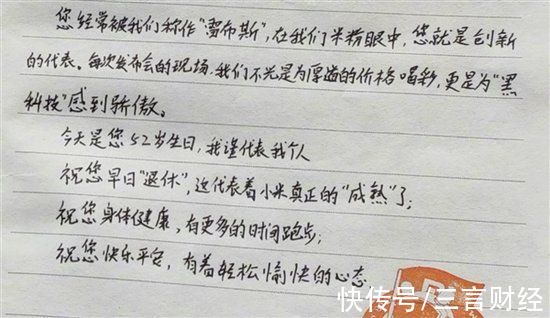 您经常被我们称作“雷布斯”，在我们米粉眼中，您就是创新
的代表。每次发布会的现场，我们不光是为厚道的价格喝彩，更是为“黑
科技”感到骄傲。
今天是您52岁生日，我谨代表我个人
祝您早日“退休”，这代表着小米真正的“成熟”了；
祝您身体健康，有更多的时间跑步；
祝您快乐平安，有着轻松愉快的心态
快传号/三言财经